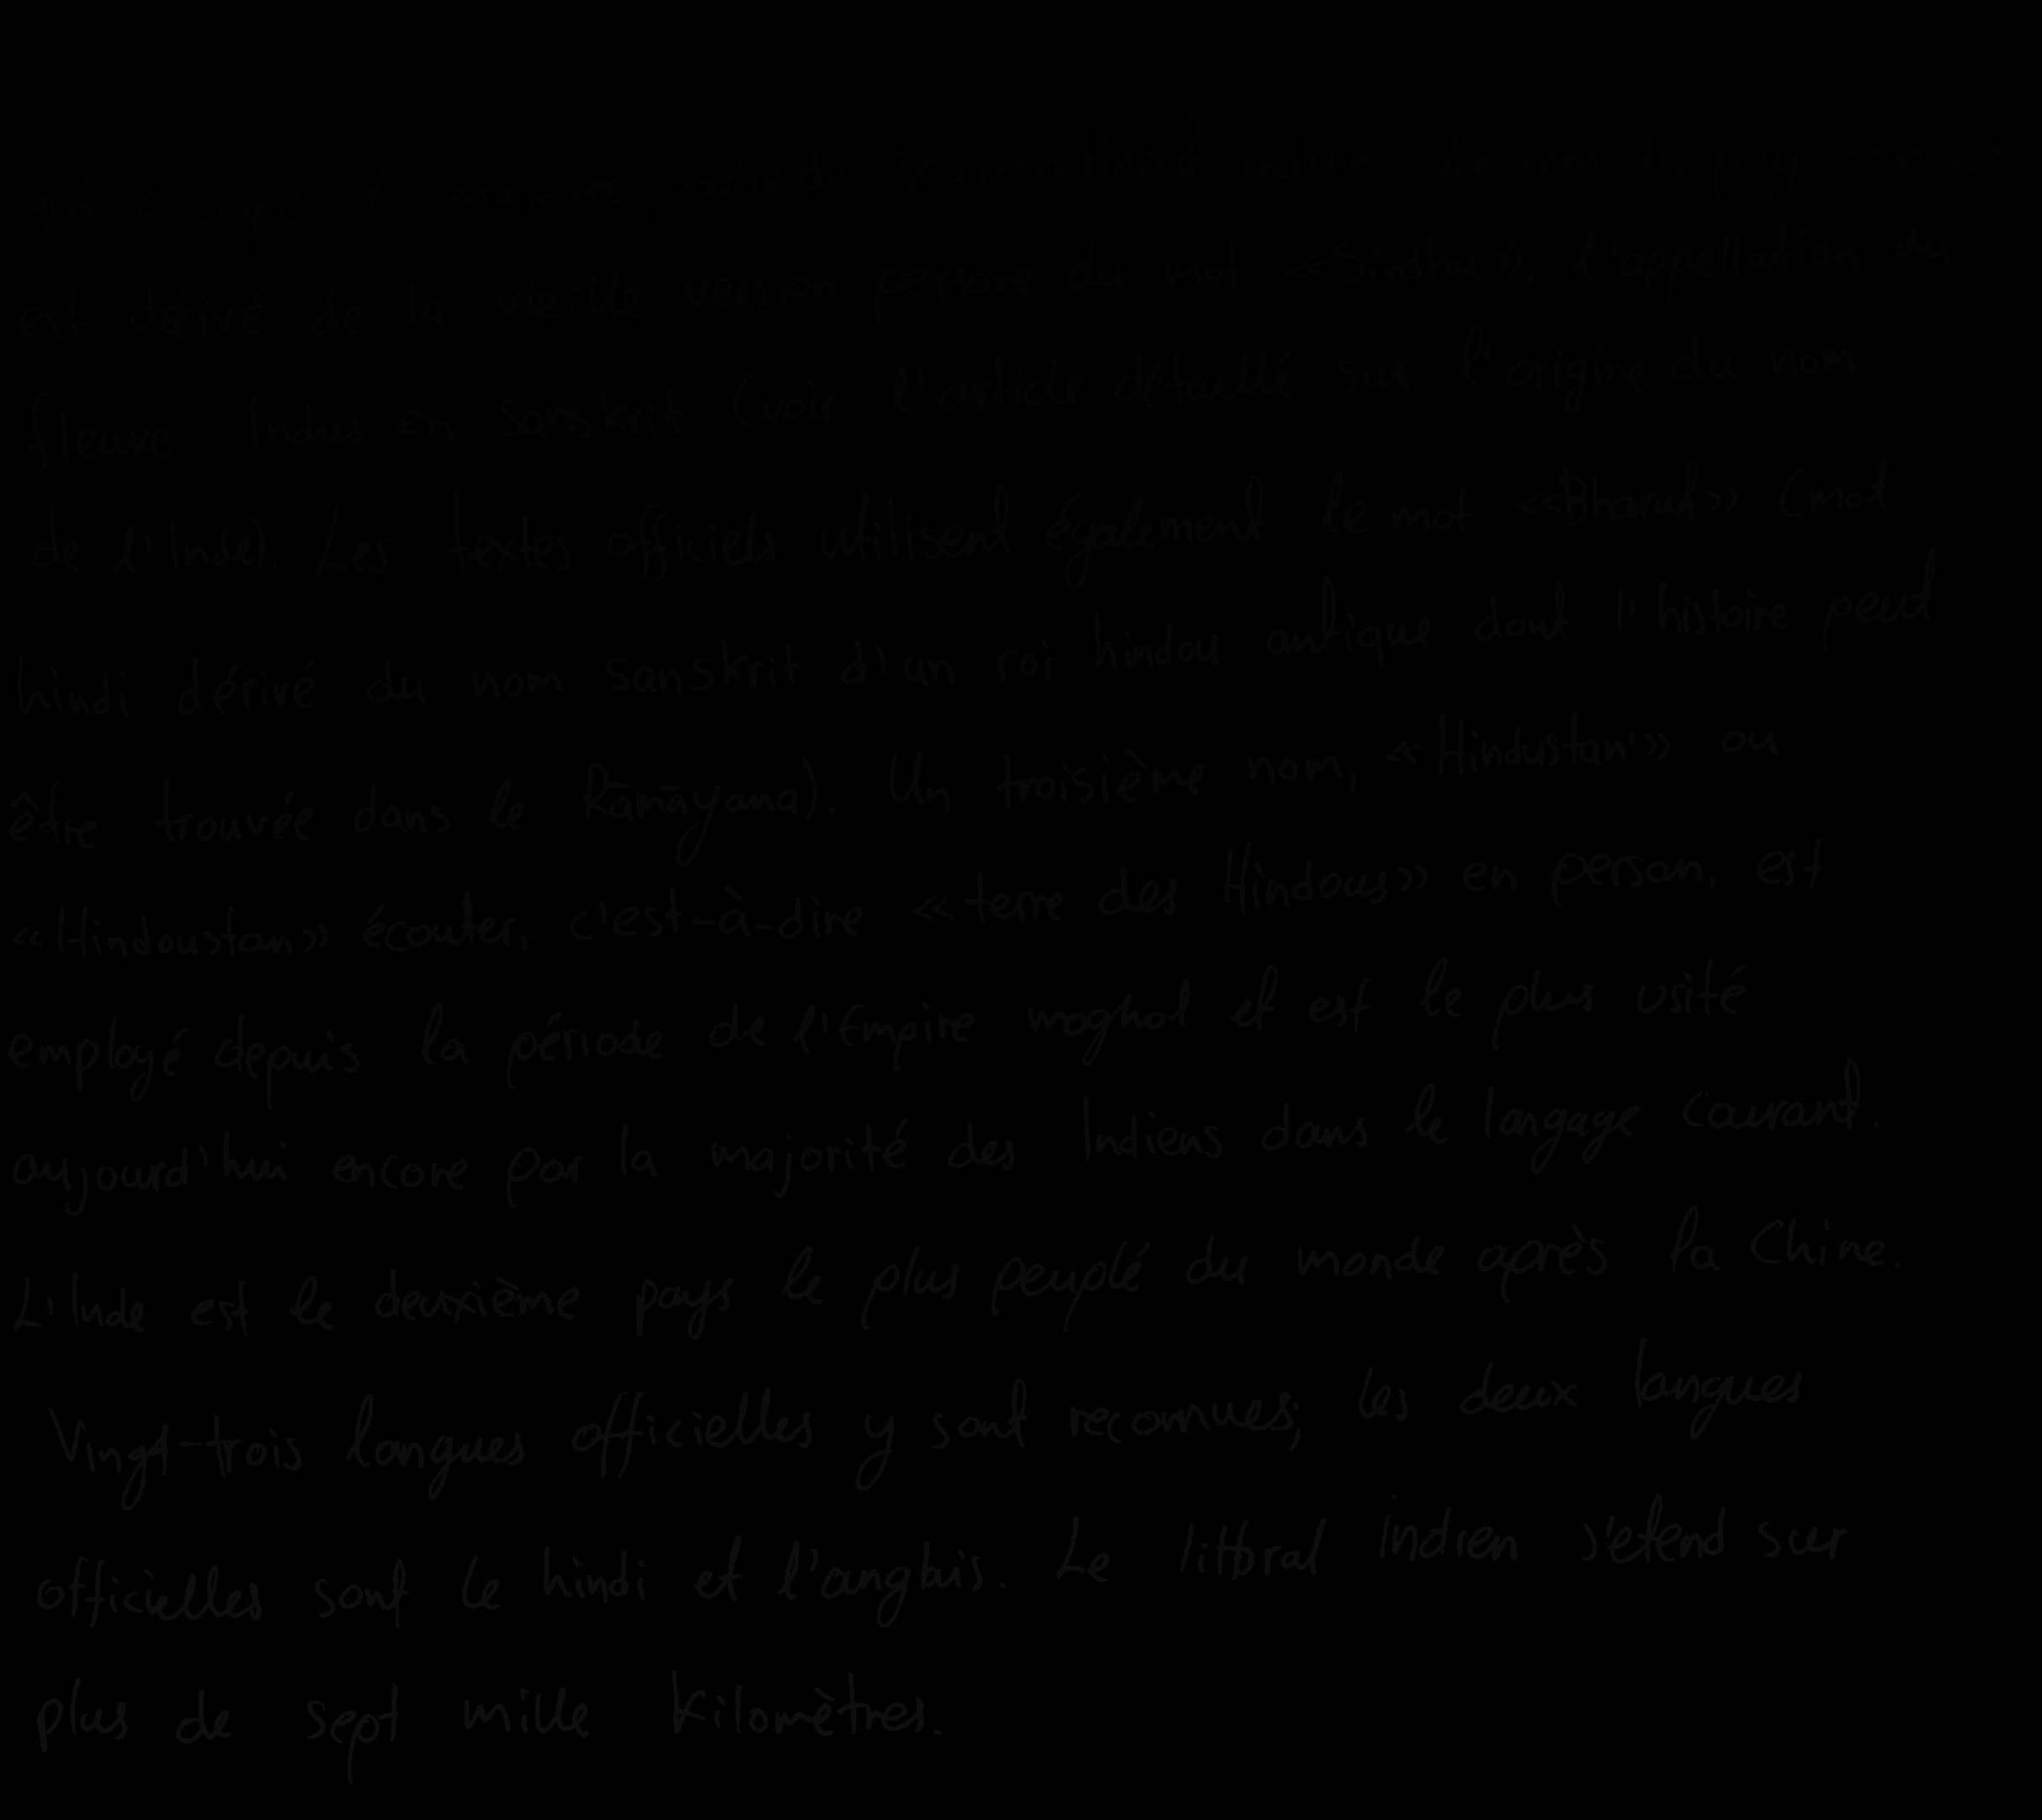 L'Inde, officiellement la République de l'Inde, est un pays du sud de l'Asie
qui occupe la majeure partie du sous-continent Indien. Le nom du pays «Inde»
est dérivé de la vieille version persane du mot «Sindhu», l'appellation du
fleuve Indus en sanskrit (voir l'article détaillé sur l'origine du nom
de l'Inde). Les textes officiels utilisent également le mot «Bharat» (mot
hindi dérivé du nom sanskrit d'un roi hindou antique dont l'histoire peut
être trouvée dans le Rāmāyana). Un troisième nom, «Hindustan'» ou
«Hindoustan» écouter, c'est-à-dire «terre des Hindous» en persan, est
employé depuis la période de l'Empire moghol et est le plus usité
aujourd'hui encore par la majorité des Indiens dans le langage courant.
L'Inde est le deuxième pays le plus peuplé du monde après la Chine.
Vingt-trois langues officielles y sont reconnues; les deux langues
officielles sont le hindi et l'anglais. Le littoral indien s'étend sur
plus de sept mille kilomètres.